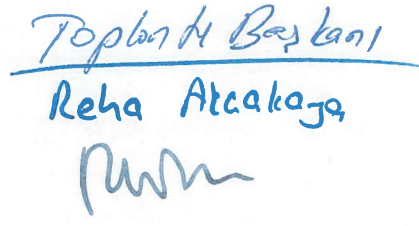 Toplantı Başkanı
Reha Akçakaya